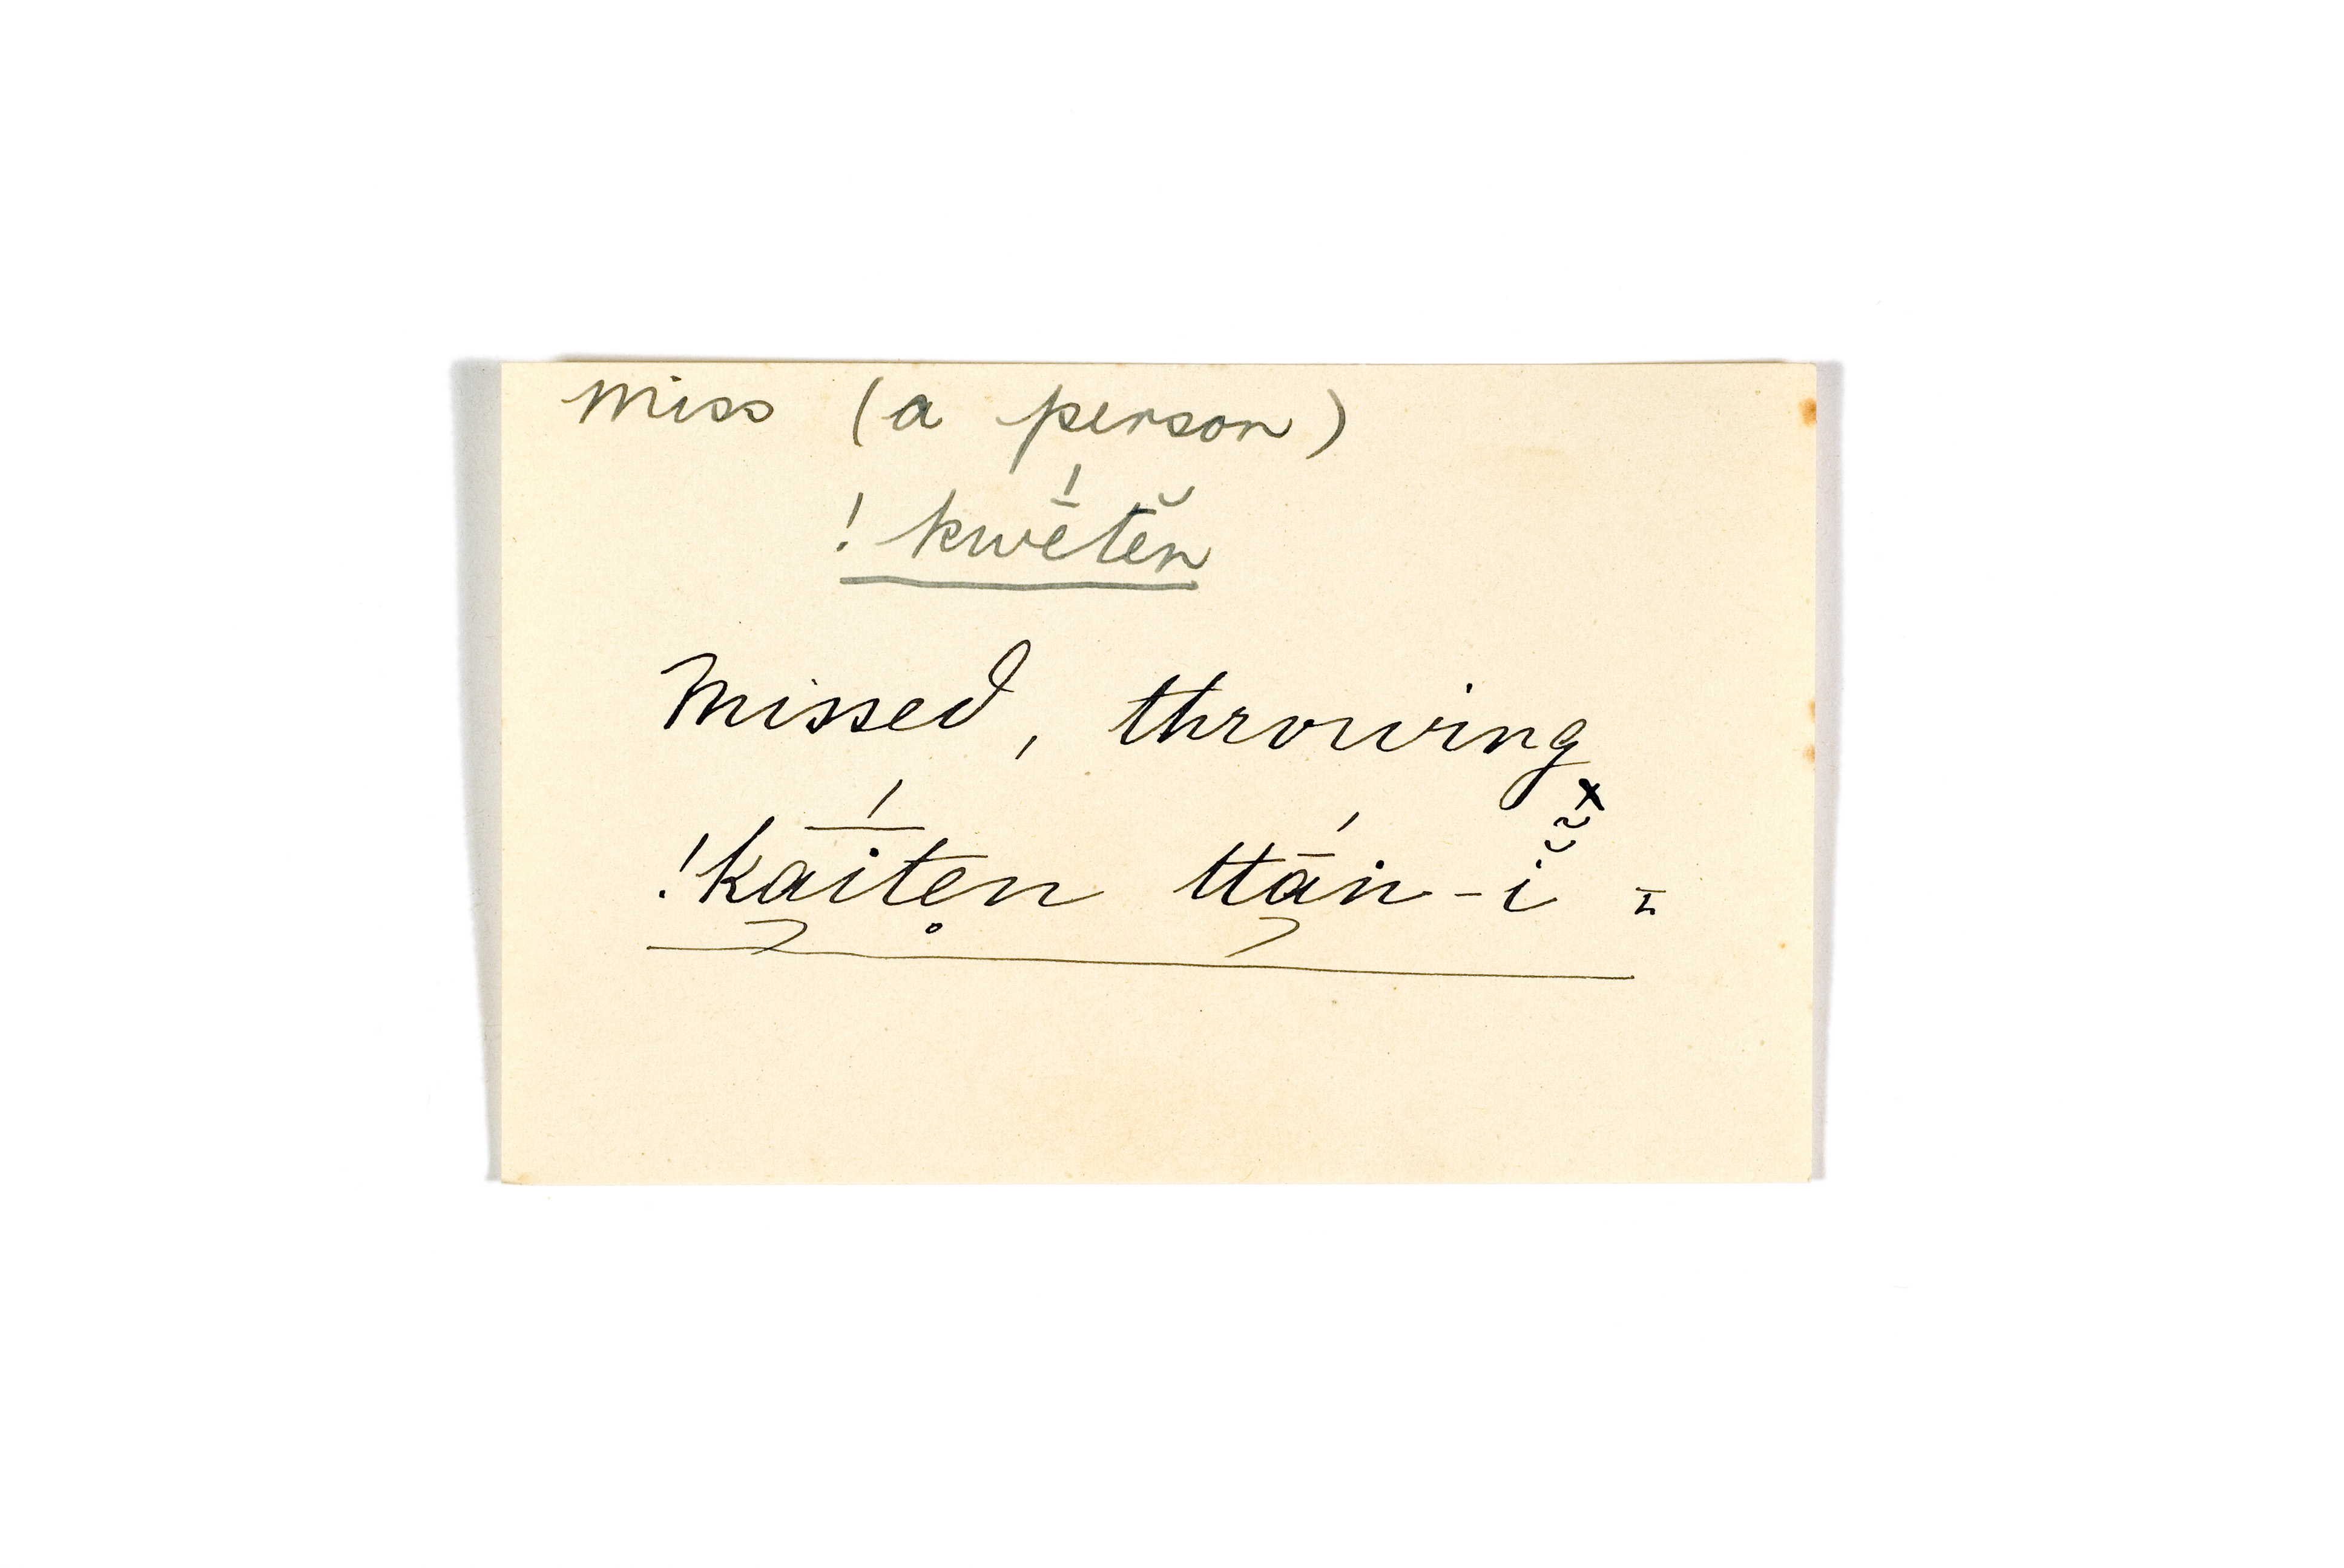 Miss (a person)
! kwḗtĕn
Missed, throwing
!kā́iten ttā́n-ĭ =